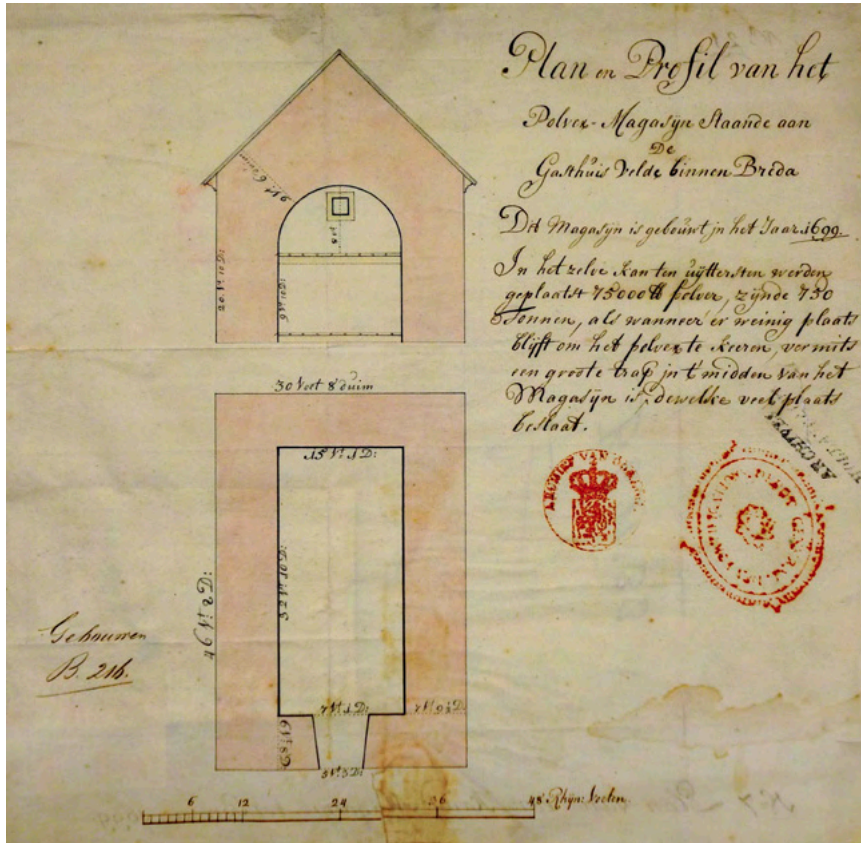 Plan en Profil van het
Polver-Magasÿn Staande aan
De
Gasthuis Velde binnen Breda
Dit Magasÿn is gebouwt jn het Jaar 1699.
In het zelve kan ten uÿttersten werden
geplaatst 75000 ℔ polver, zÿnde 750
Tonnen, als wanneer er weinig plaats
blÿft om het polver te keeren, vermits
een groote trap jn t'midden van het
Magasÿn is, dewelke veel plaats
beslaat.
20. Vt. 10 D:
9 Vt. 10 D:
30 Voet 8 duim
15 Vt. 1 D:
32 Vt. 10 D:
46 Vt. 2 D:
7 Vt. 1 D:
7 Vt. 9½ D:
3 Vt. 3 D:
Gebouwen
B. 216.
ARCHIEF VAN
6 12 24 36 48 Rhÿn: Voeten.